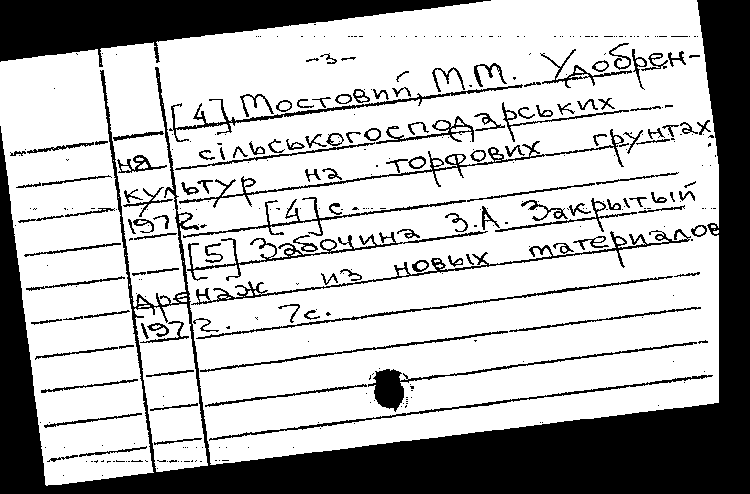 -3-
[4], Мостовий, М.М. Удобрен-
ня сільськогосподарських
культур на торфових грунтах.
1972. [4] с.
[5] Забочина З.А. Закрытый
дренаж из новых материалов
1972. 7с.